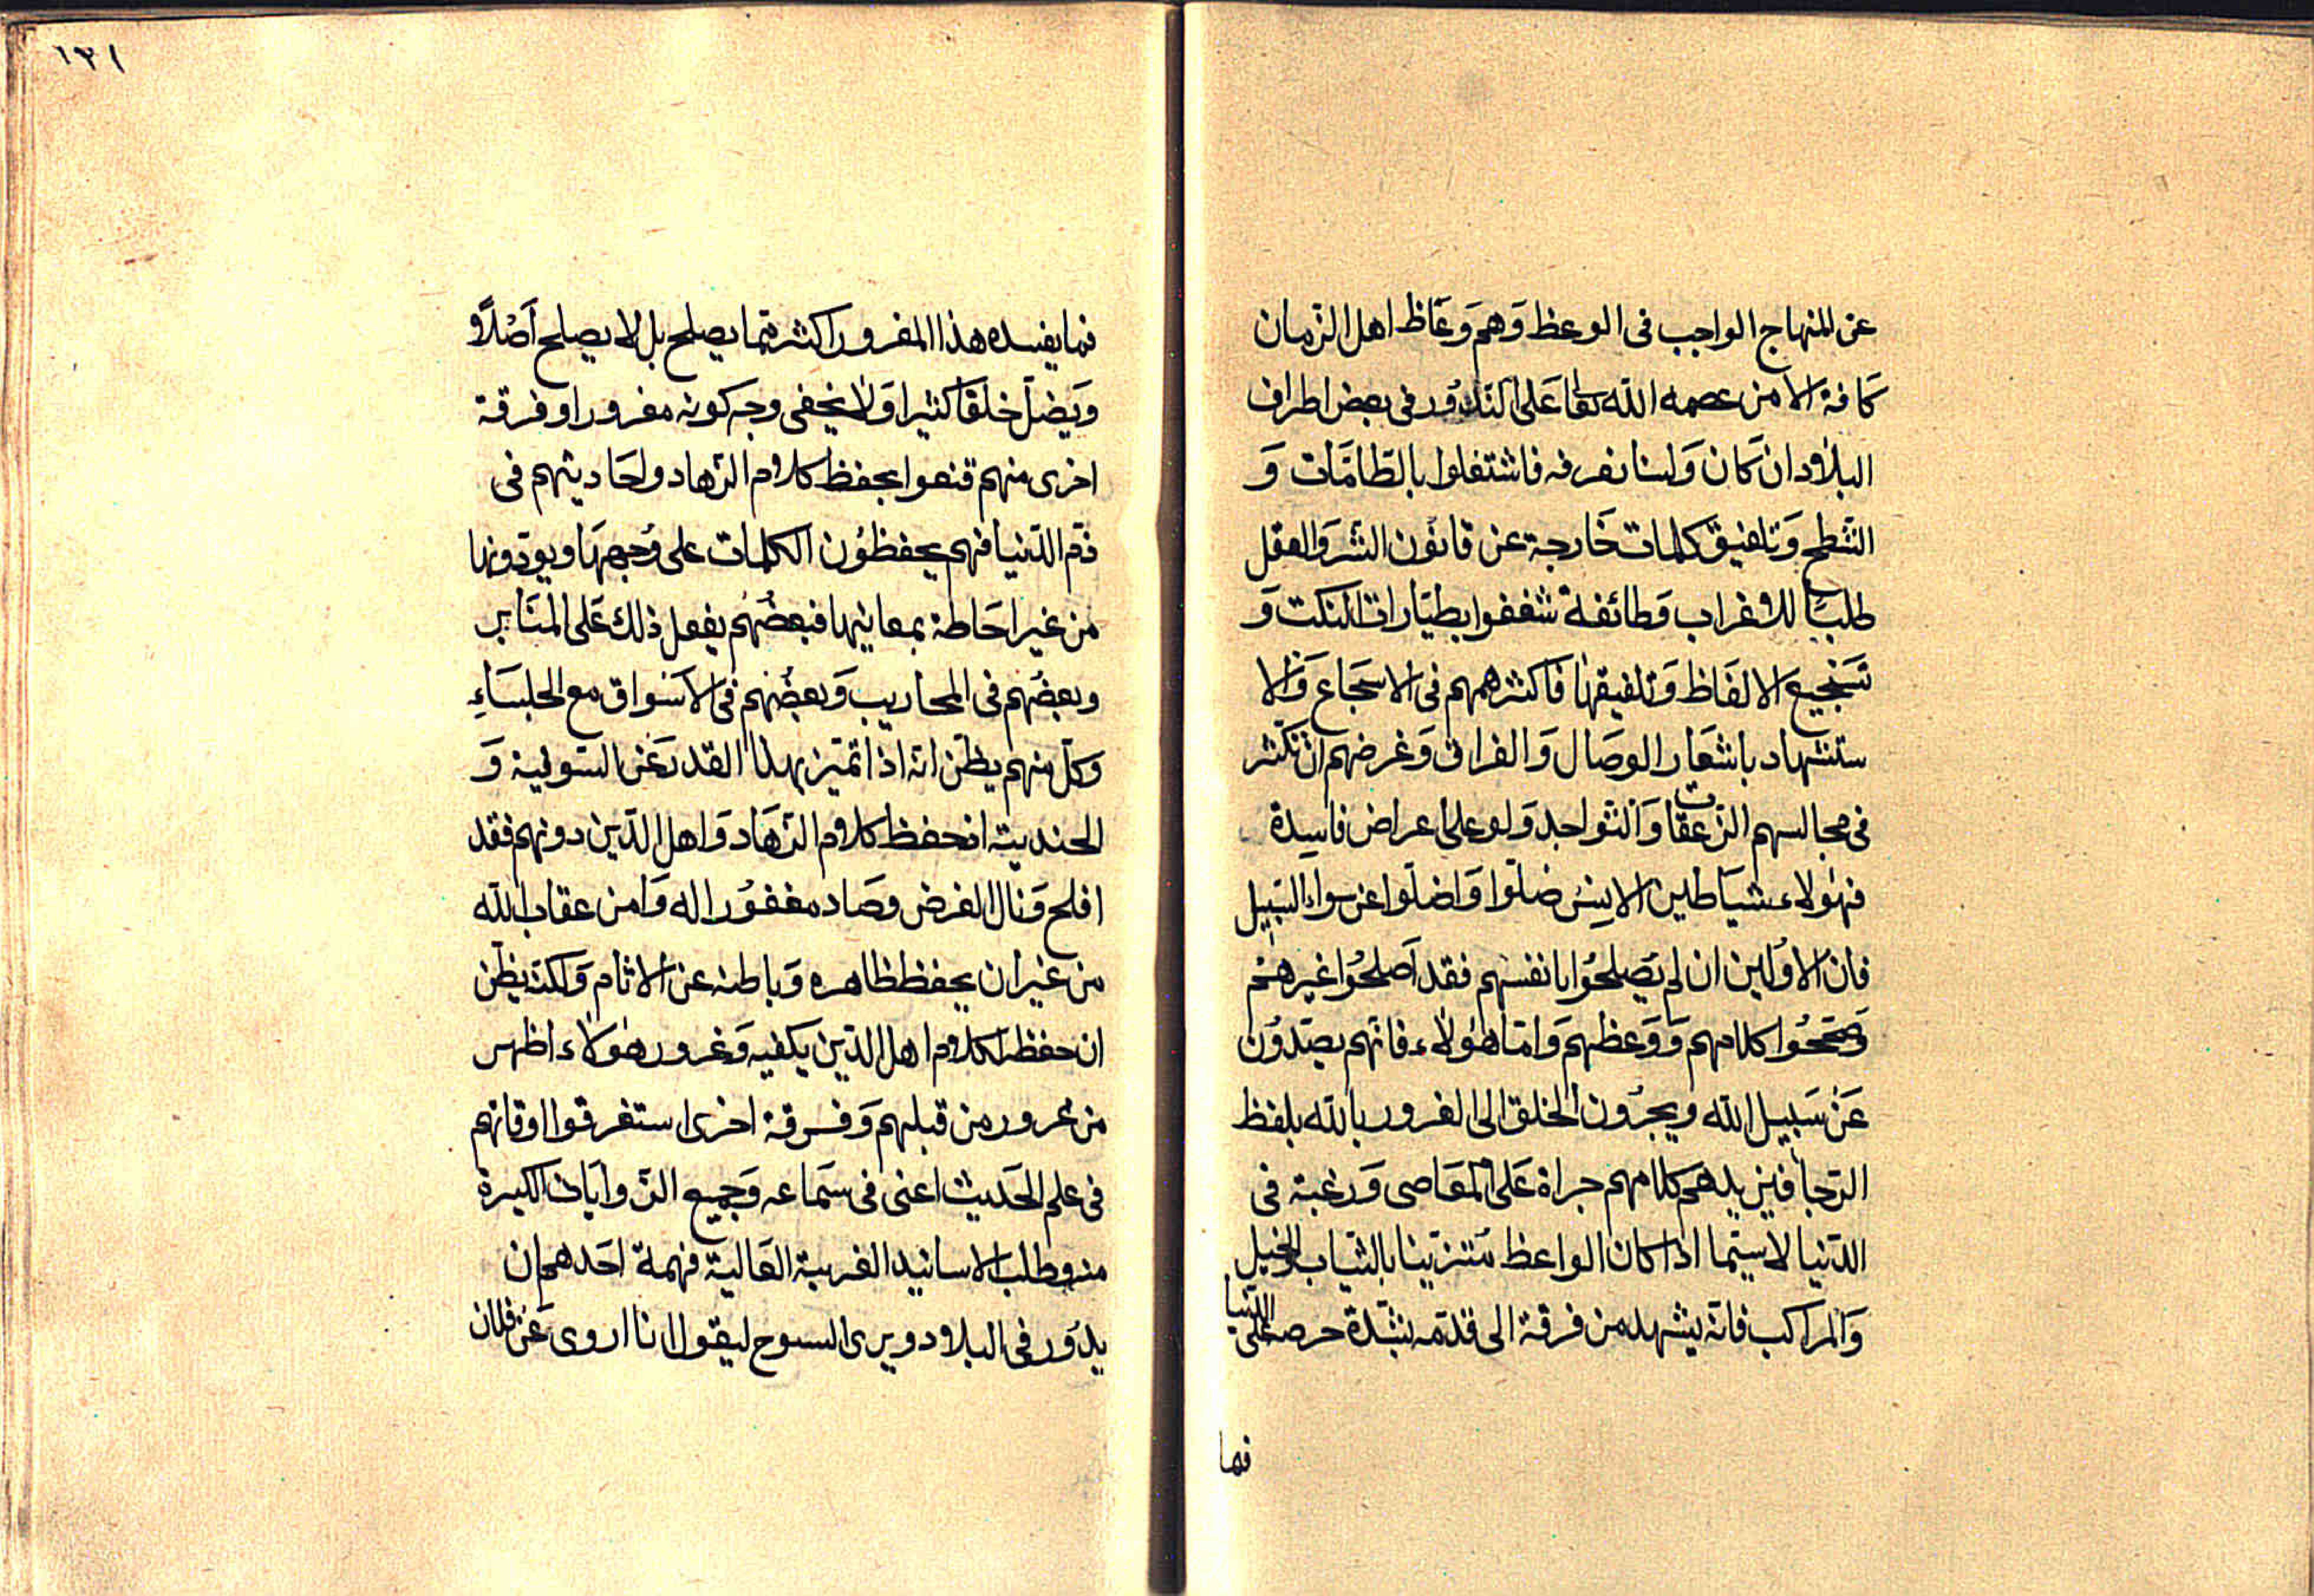 عن المنهاج الواجب فى الوعظ وَهم وَعّاظ اهل الزّمان
كَافة الا من عصمه الله تعا عَلى النّدُور فى بعض اطراف
البلاد ان كَان وَلسنا نعرفه فاشتغلوا بالطّامّات وَ
الشّطح وَتلفيق كلمات خَارجة عن قانُون الشرع وَالعقل
طلبًا للاغراب وَطائفة شغفوا بطيّارات النكت وَ
تَسجيع الالفَاظ وَتلفيقها فَاكثر همهم فى الاسجَاع وَالا
ستشهاد باشعَار الوصَال وَالفراق وَغرضهم ان تكثر
فى مجالسهم الزّعقات وَالتّواجد وَلو على اعراض فاسِدة
فهٰولاء شيَاطين الانِس ضلّوا وَاضلّوا عن سواء السَّبِيل
فان الاوّلين ان لم يَصلحُوا بانفسهم فقد اَصلحُوا غيرهمُ
وَصَحّحُوا كلامهم وَوَعظهم وَامّا هٰولاء فانّهم يصدّوُن
عَن سَبيل الله ويجرُون الخلق الى الغرور بالله بلفظ
الرّجا فيزيدهم كلامهم جراة عَلى المعَاصى وَرغبة فى
الدّنيا لاسيّما اذا كان الواعظ مُتزيّنا بالثّياب وَالخيل
وَالمراكب فانّه يشهد من فرقة الى قدمه بشدّة حرصه على الدّنيا
فما
١٣١
فما يفسده هذا المغرور اكثر ممّا يصلح بل لا يصلح اَصْلاً و
وَيَضلّ خلقًا كثيرا وَلا يخفى وجه كونه مغرورا وفرقة
اخرى منهم قنعوا بحفظ كلام الزّهاد واحَاديثهم فى
ذمّ الدّنيا فهم يحفظوُن الكلمات على وُجهها ويودّونها
من غير احَاطة بمعانيها فبعضُهم يفعل ذلك عَلى المنَابر
وبعضَهم فى المحاريب وَبعضُهم فى الاَسواق مع الجلسَاءِ
وَكلّ منهم يظنّ انّه اذا تميّز بهذا القدر عَن السّوقية وَ
الجنديّة اذ حفظ كلام الزهَّاد وَاهل الدّين دونهم فقد
افلح وَنال الغرض وصَار مغفوُرا له وَامن عقاب الله
من غير ان يحفظ ظاهره وَباطنه عن الاثام وَلكنّه يظنّ
ان حفظه لكلام اهل الدّين يكفيه وَغرور هٰولاء اظهر
من غرور من قبلهم وَفرقة اخرى استغرقوا اوقاتهم
فى علم الحَديث اعنى فى سَماعه وَجميع الرّوايَات الكثيرة
منه وطلب الاسانيد الغريبة العَالية فهمة احَدهم ان
يدُور فى البلاد ويرى الشيوخ ليقول انا اروى عَن فلان